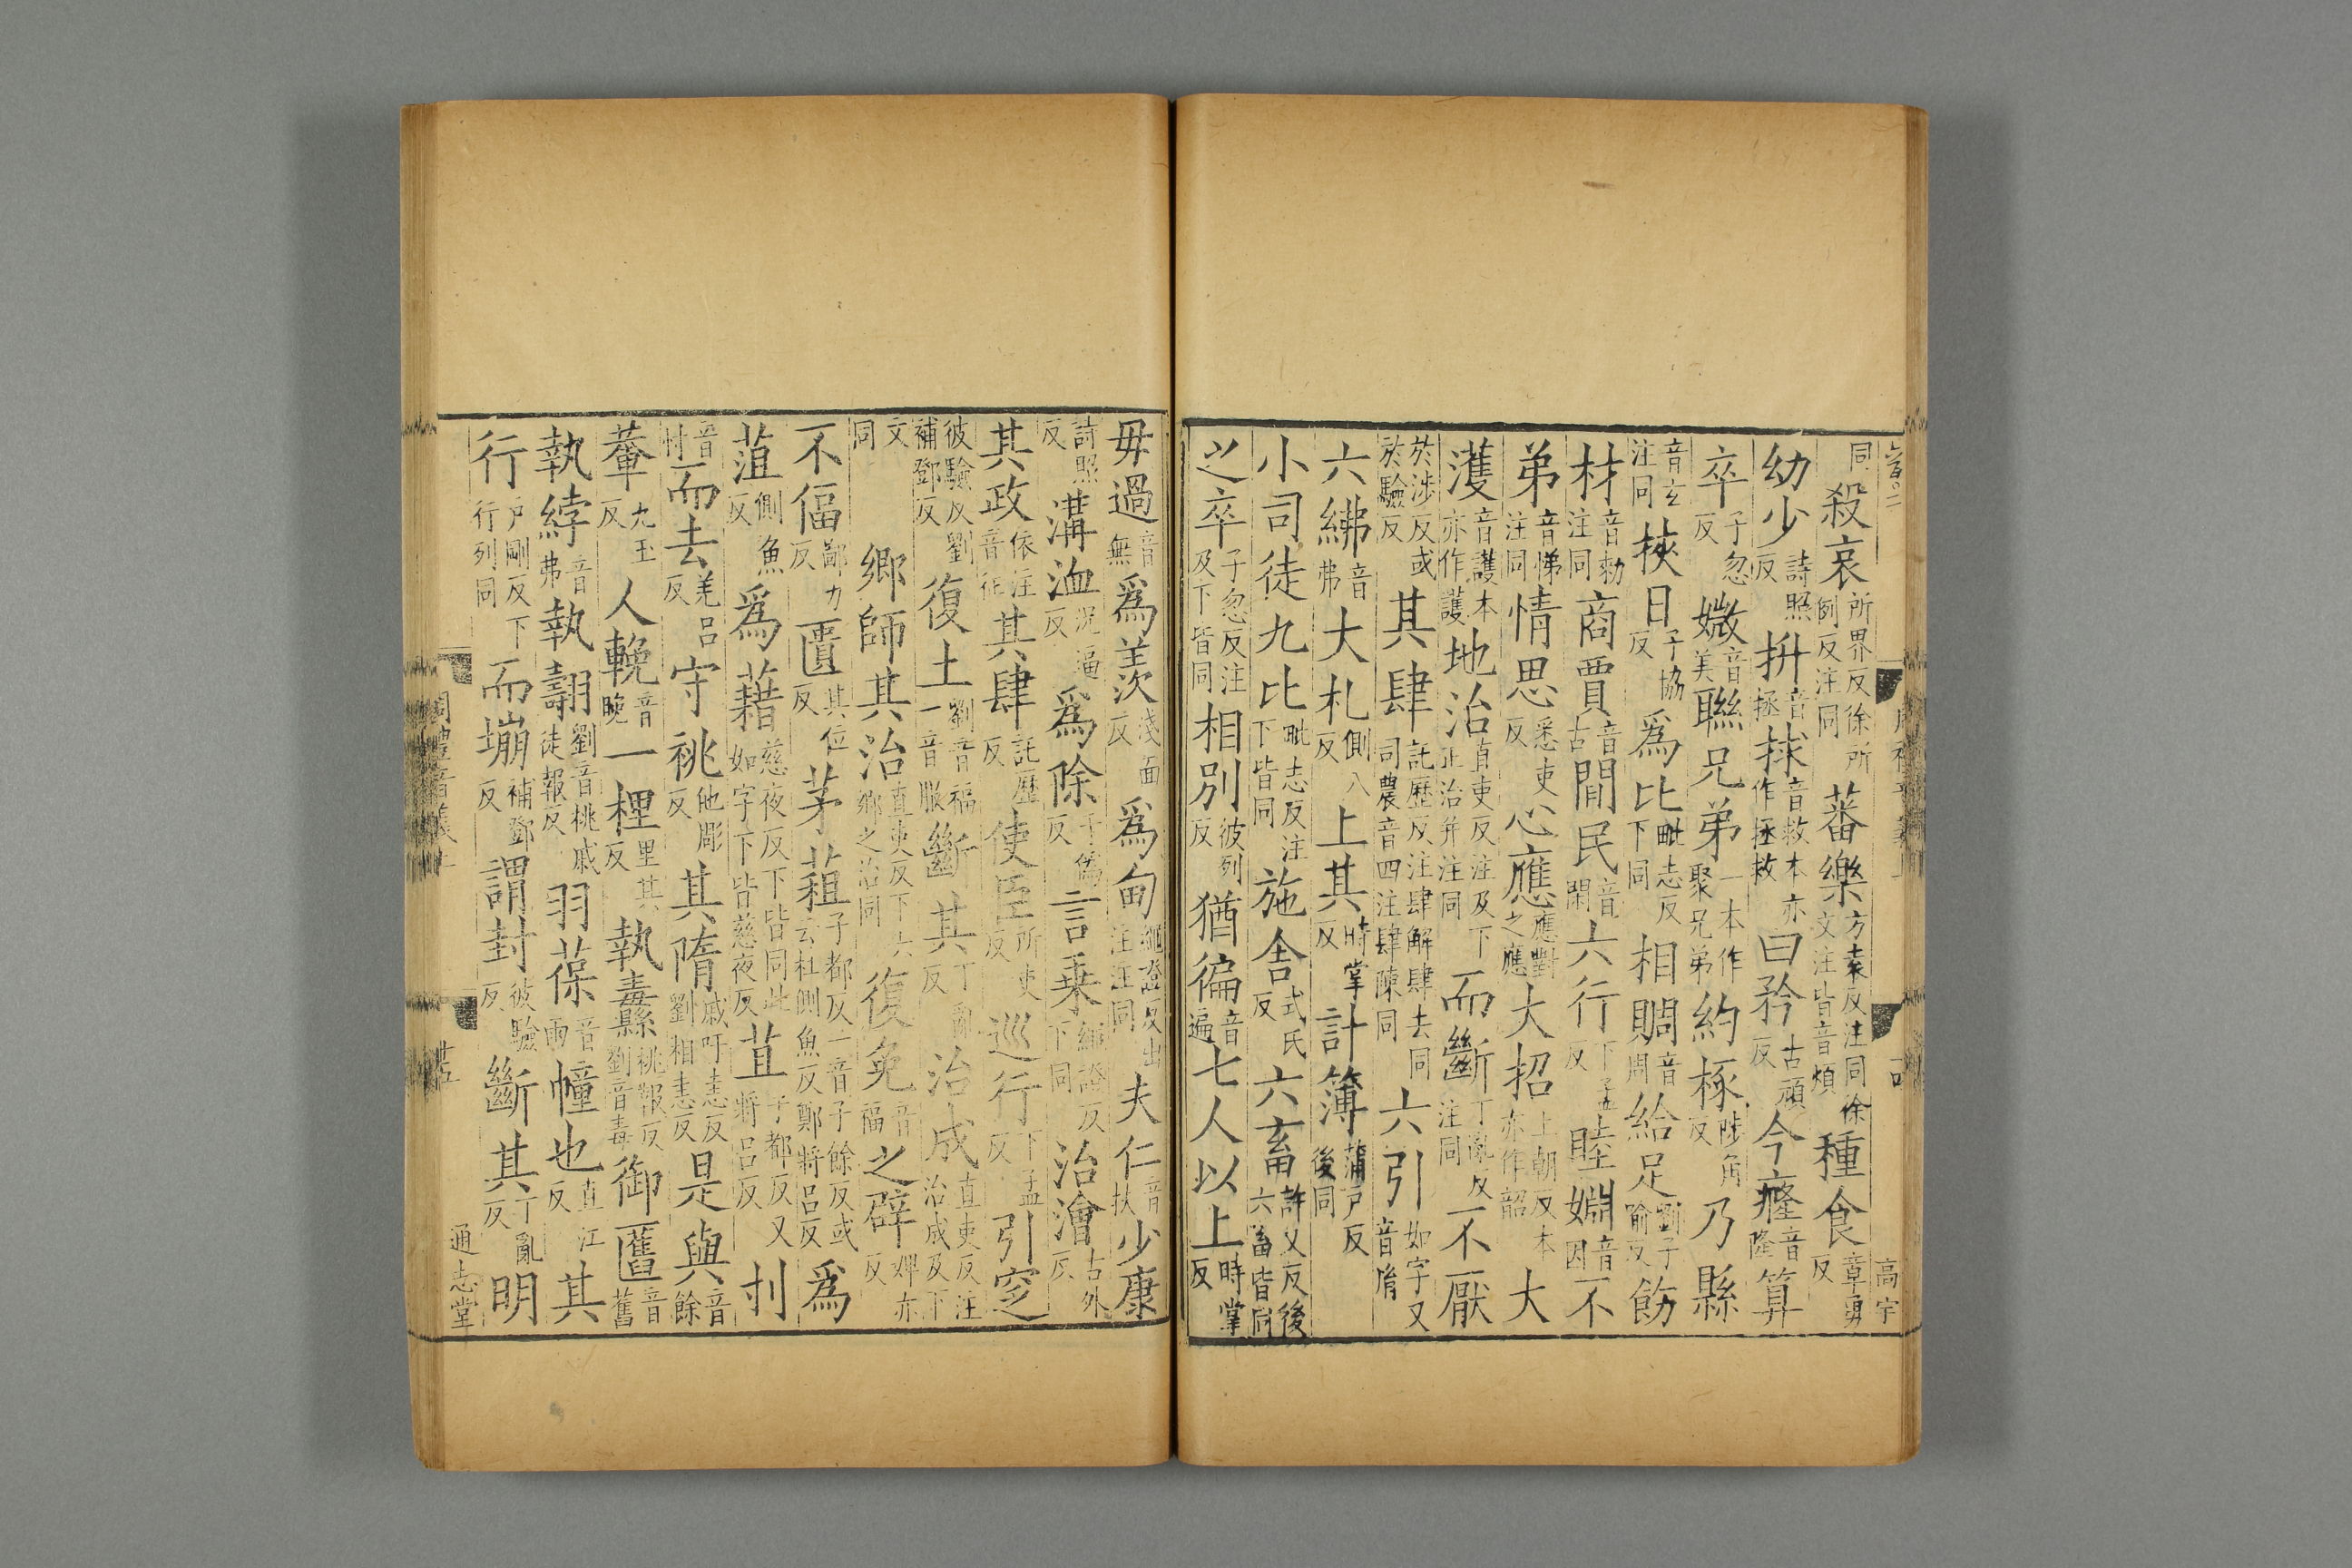 同殺哀所界反徐所例反注同蕃樂方袁反注同徐文注皆音煩種食章勇反
幼少詩照反拚音拯捄音救本亦作拯救曰矜古頑反今癃音隆算
卒子忽反媺音美聯兄弟一本作聚兄弟約椓陟角反乃縣
音玄注同挾日子協反爲比毗志反下同相賙音周給足劉子喻反飭
材音勑注同商賈音古閒民音閑六行下孟反睦婣音因不
弟音悌注同情思悉吏反心應應對之應大招上朝反本亦作韶大
濩音護本亦作護地治直吏反注及下正治并注同而斷丁亂反注同不厭
於涉反或於驗反其肆託歷反注肆解肆去同司農音四注肆陳同六引如字又音胤
六紼音弗大札側八反上其時掌反計簿蒲戶反後同
小司徒九比毗志反注下皆同施舍式氏反六畜許又反後六畜皆同
之卒子忽反注及下皆同相別彼列反猶徧音遍七人以上時掌反
高宇
毋過音無爲羨淺面反爲甸繩證反出注注同夫仁音扶少康
詩照反溝洫況逼反爲除于僞反言乗繩證反下同治澮古外反
其政依注音征其肆託歷反使臣所吏反巡行下孟反引窆
彼驗反劉補鄧反復土劉音福一音服斷其丁亂反治成直吏反注治成及下
文同鄉師其治直吏反下六鄉之治同復免音福之辟婢亦反
不偪鄙力反匱其位反茅蒩子都反一音子餘反或云杜側魚反鄭將呂反爲
菹側魚反爲藉慈夜反下皆同此如字下皆慈夜反苴子都反又將呂反刌
音忖而去羌呂反守祧他彫反其隋戚吁恚反劉相恚反是與音餘
輂九玉反人輓音晚一梩里其反執纛桃報反劉音毒御匶音舊
執綍音弗執翿劉音桃戚徒報反羽葆音雨幢也直江反其
行戶剛反下行列同而堋補鄧反謂封彼驗反斷其丁亂反明
周禮音義上
通志堂